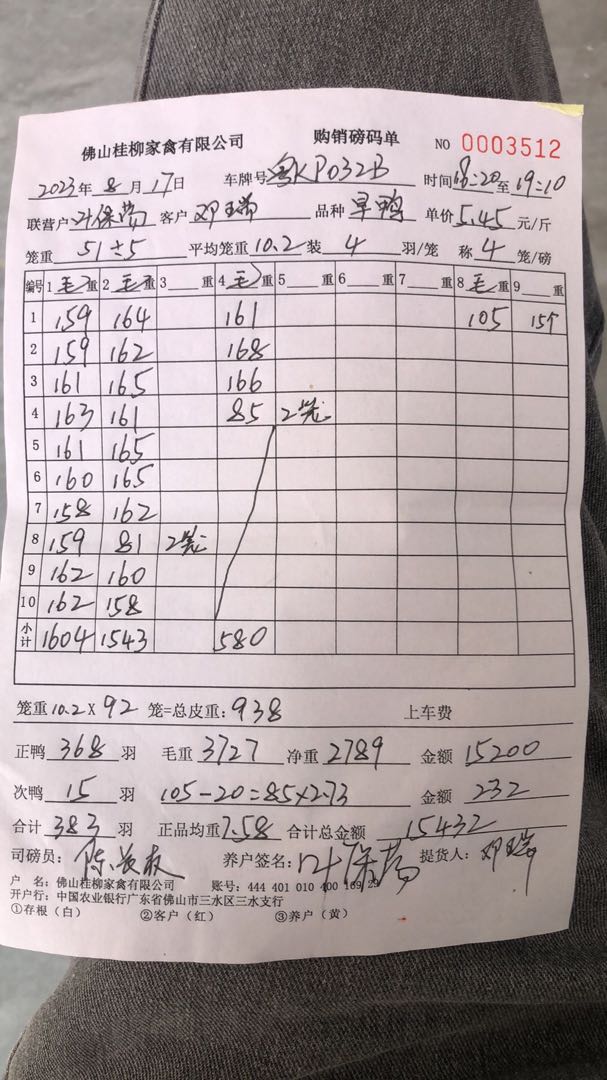 佛山桂柳家禽有限公司 购销磅码单 NO 0003512
2023年8月17日 车牌号 粤KP032B 时间 18:20至19:10
联营户 叶保荣 客户 邓瑞 品种 旱鸭 单价 5.45 元/斤
笼重 51÷5 平均笼重 10.2 装 4 羽/笼 称 4 笼/磅
编号 1 毛重 2 毛重 3 重 4 毛重 5 重 6 重 7 重 8 毛重 9 重
1 159 164 161 105 157
2 159 162 168
3 161 165 166
4 163 161 85 2笼
5 161 165
6 160 165
7 158 162
8 159 81 2笼
9 162 160
10 162 158
小计 1604 1543 580
笼重 10.2 X 92 笼=总皮重: 938 上车费
正鸭 368 羽 毛重 3727 净重 2789 金额 15200
次鸭 15 羽 105-20=85×2.73 金额 232
合计 383 羽 正品均重 7.58 合计总金额 15432
司磅员: 陈 养户签名: 叶保荣 提货人: 邓瑞
户 名: 佛山桂柳家禽有限公司 账号: 444 401 010 400 169 29
开户行: 中国农业银行广东省佛山市三水区三水支行
①存根（白） ②客户（红） ③养户（黄）